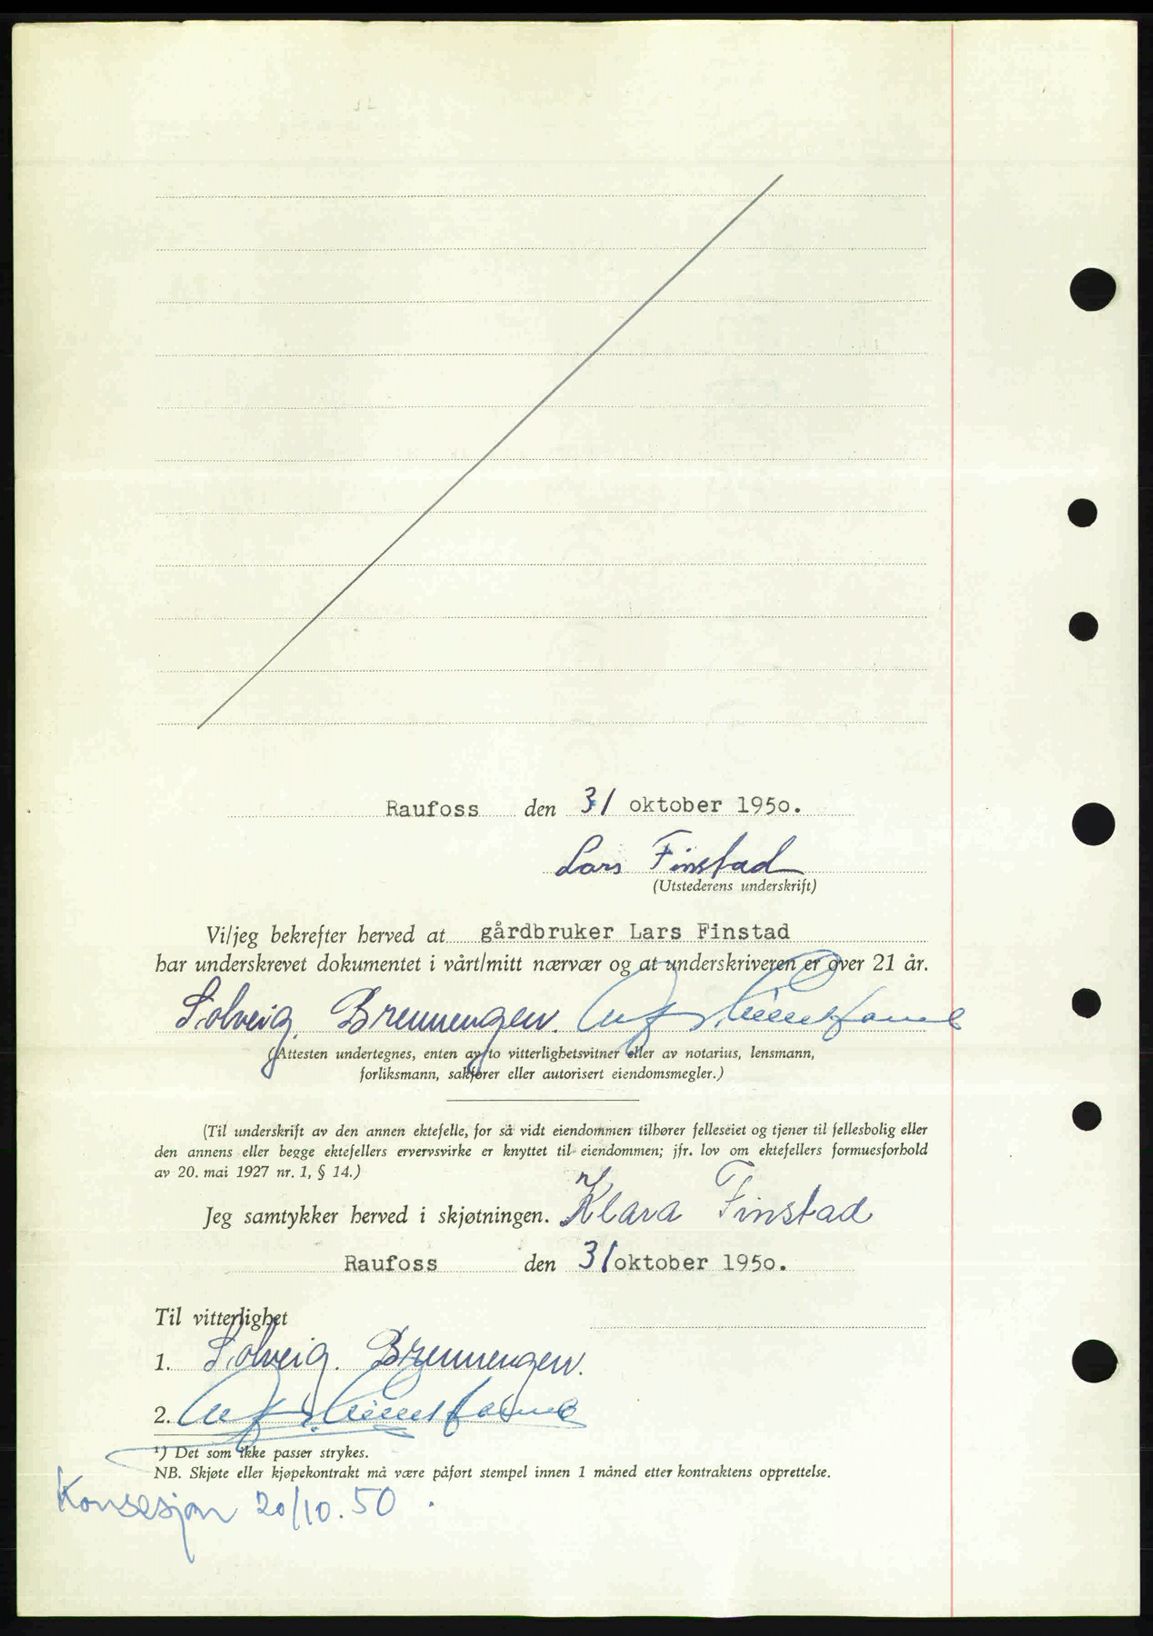 Raufoss den 31 oktober 1950.
Lars Finstad
(Utstederens underskrift)
Vi/jeg bekrefter herved at gårdbruker Lars Finstad
har underskrevet dokumentet i vårt/mitt nærvær og at underskriveren er over 21 år.
Solveig Brennengen.
(Attesten undertegnes, enten av to vitterlighetsvitner eller av notarius, lensmann,
forliksmann, sakfører eller autorisert eiendomsmegler.)
(Til underskrift av den annen ektefelle, for så vidt eiendommen tilhører felleseiet og tjener til fellesbolig eller
den annens eller begge ektefellers ervervsvirke er knyttet til eiendommen; jfr. lov om ektefellers formuesforhold
av 20. mai 1927 nr. 1, § 14.)
Jeg samtykker herved i skjøtningen. Klara Finstad
Raufoss den 31 oktober 1950.
Til vitterlighet
1. Solveig Brennengen.
2.
¹) Det som ikke passer strykes.
NB. Skjøte eller kjøpekontrakt må være påført stempel innen 1 måned etter kontraktens opprettelse.
Konsesjon 20/10.50.